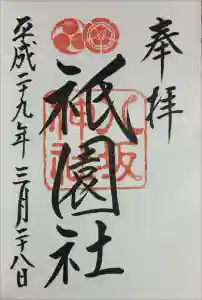 奉拝
八坂神社
祇園社
平成二十九年三月二十八日